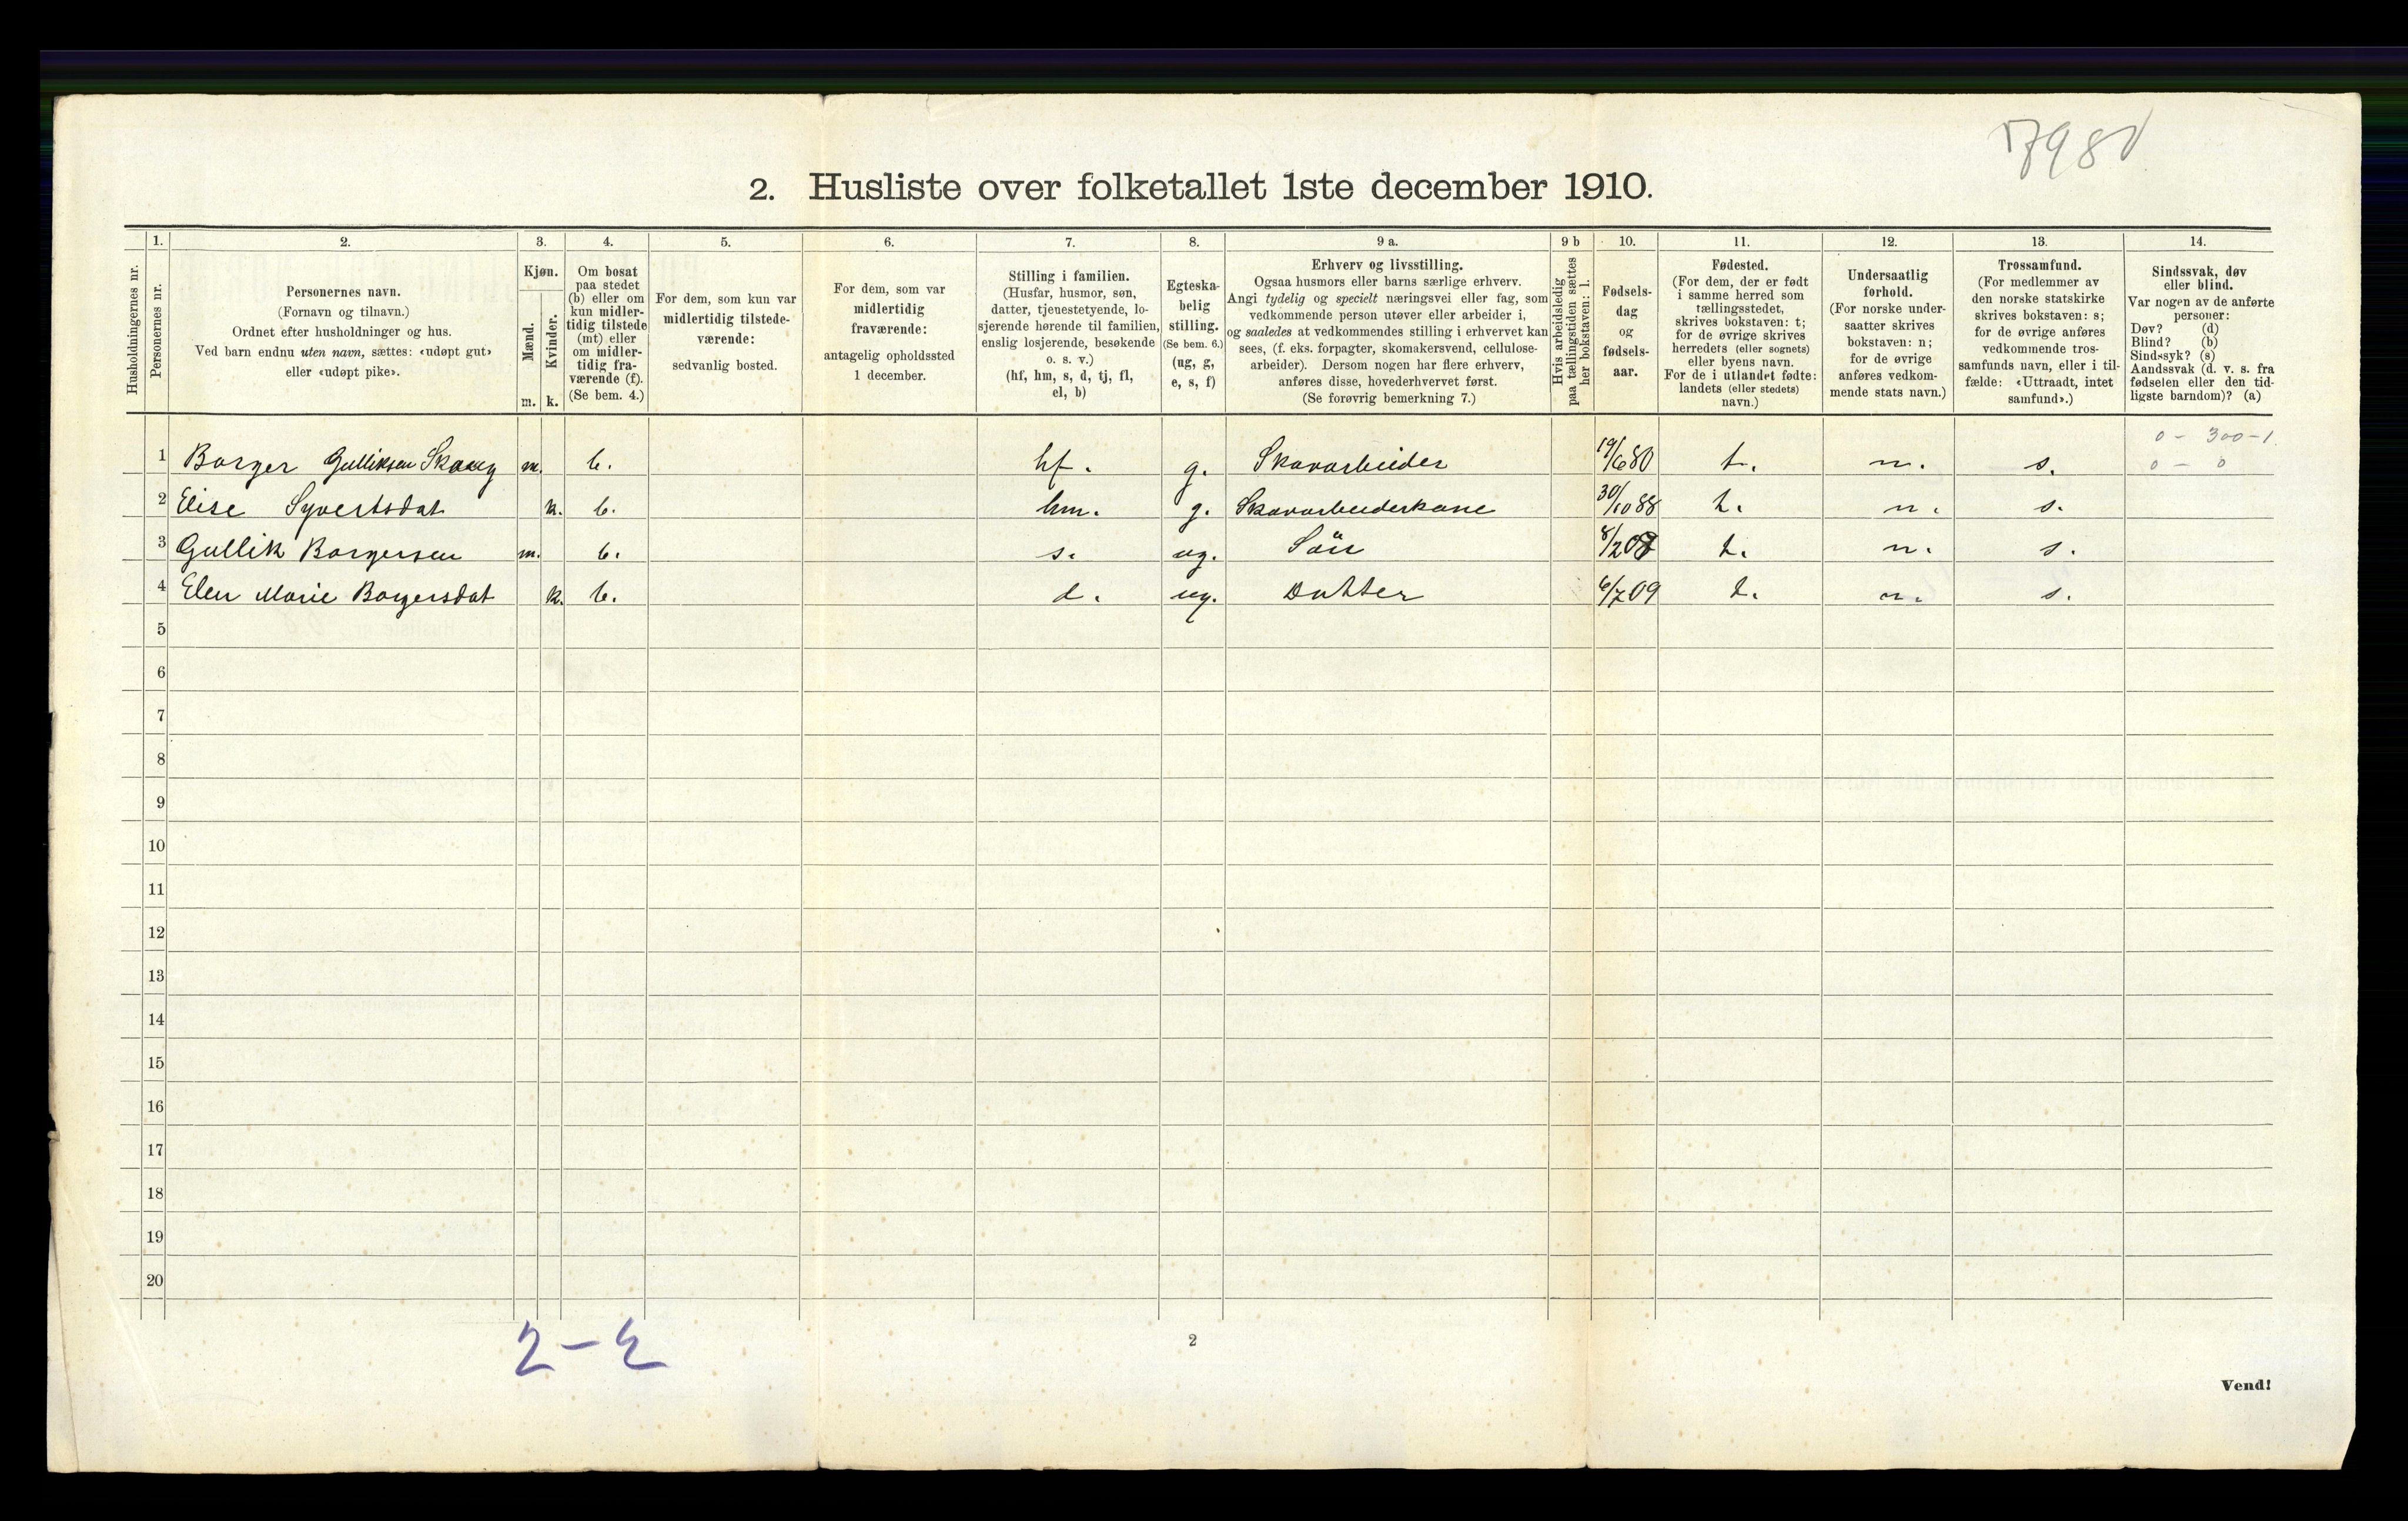 7981
2. Husliste over folketallet 1ste december 1910.
Husholdningernes nr.
1. Personernes nr.
2. Personernes navn.
(Fornavn og tilnavn.)
Ordnet efter husholdninger og hus.
Ved barn endnu uten navn, sættes: «udøpt gut»
eller «udøpt pike».
3. Kjøn.
Mænd. m.
Kvinder. k.
4. Om bosat
paa stedet
(b) eller om
kun midler-
tidig tilstede
(mt) eller
om midler-
tidig fra-
værende (f).
(Se bem. 4.)
5. For dem, som kun var
midlertidig tilstede-
værende:
sedvanlig bosted.
6. For dem, som var
midlertidig
fraværende:
antagelig opholdssted
1 december.
7. Stilling i familien.
(Husfar, husmor, søn,
datter, tjenestetyende, lo-
sjerende hørende til familien,
enslig losjerende, besøkende
o. s. v.)
(hf, hm, s, d, tj, fl,
el, b)
8. Egteska-
belig
stilling.
(Se bem. 6.)
(ug, g,
e, s, f)
9 a. Erhverv og livsstilling.
Ogsaa husmors eller barns særlige erhverv.
Angi tydelig og specielt næringsvei eller fag, som
vedkommende person utøver eller arbeider i,
og saaledes at vedkommendes stilling i erhvervet kan
sees, (f. eks. forpagter, skomakersvend, cellulose-
arbeider). Dersom nogen har flere erhverv,
anføres disse, hovederhvervet først.
(Se forøvrig bemerkning 7.)
9 b Hvis arbeidsledig
paa tællingstiden sættes
her bokstaven: l.
10. Fødsels-
dag
og
fødsels-
aar.
11. Fødested.
(For dem, der er født
i samme herred som
tællingsstedet,
skrives bokstaven: t;
for de øvrige skrives
herredets (eller sognets)
eller byens navn.
For de i utlandet fødte:
landets (eller stedets)
navn.)
12. Undersaatlig
forhold.
(For norske under-
saatter skrives
bokstaven: n;
for de øvrige
anføres vedkom-
mende stats navn.)
13. Trossamfund.
(For medlemmer av
den norske statskirke
skrives bokstaven: s;
for de øvrige anføres
vedkommende tros-
samfunds navn, eller i til-
fælde: «Uttraadt, intet
samfund».)
14. Sindssvak, døv
eller blind.
Var nogen av de anførte
personer:
Døv? (d)
Blind? (b)
Sindssyk? (s)
Aandssvak (d. v. s. fra
fødselen eller den tid-
ligste barndom)? (a)
0 - 300-1.
1 Borger Gulliksen Skaug m. b. hf. g. Skovarbeider 19/6 80 t. n. s. 0 - 0
2 Elise Syvertsdat k. b. hm. g. Skovarbeiderkone 30/10 88 t. n. s.
3 Gullik Borgersen m. b. s. ug. Sön 8/2 08 t. n. s.
4 Elen Marie Borgersdat k. b. d. ug. Datter 6/7 09 t. n. s.
5
6
7
8
9
10
11
12
13
14
15
16
17
18
19
20
2-2
2
Vend!